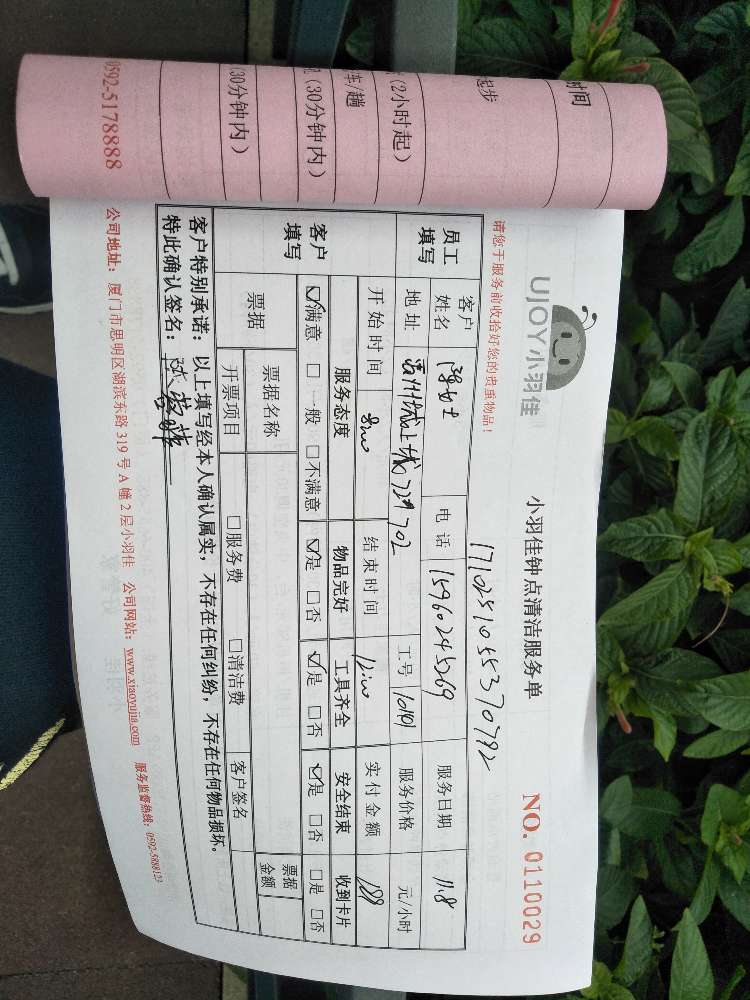 时间
起步
(2小时起)
车/趟
(30分钟内)
(30分钟内)
0592-5178888
UJOY小羽佳
小羽佳钟点清洁服务单
NO. 0110029
请您于服务前收拾好您的贵重物品!
1710251055370792
员工填写
客户姓名 女士 电话 15960245269 服务日期 11.8
地址 702 工号 服务价格 元/小时
开始时间 8:00 结束时间 12:00 实付金额
客户填写
服务态度 物品完好 工具齐全 安全结束 收到卡片
☑满意 □一般 □不满意 ☑是 □否 ☑是 □否 ☑是 □否 □是 □否
票据 票据名称 票据金额
开票项目 □服务费 □清洁费 客户签名
客户特别承诺: 以上填写经本人确认属实,不存在任何纠纷,不存在任何物品损坏。
特此确认签名:
公司地址: 厦门市思明区湖滨东路 319 号 A 幢 2 层小羽佳 公司网站: www.xiaoyujia.com 服务监督热线: 0592-5888123